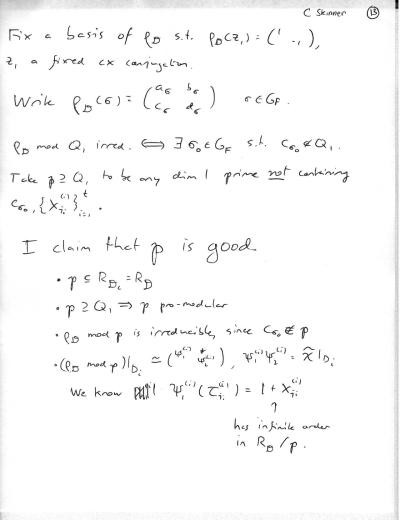 C Skinner (15)
Fix a basis of ρ_D s.t. ρ_D(z_1) = (1 -1),
z_1 a fixed cx conjugation.
Write ρ_D(σ) = (a_σ b_σ / c_σ d_σ) σ∈G_F.
ρ_D mod Q_1 irred. ⟺ ∃ σ_0 ∈ G_F s.t. c_σ0 ∉ Q_1.
Take p ⊇ Q_1 to be any dim 1 prime not containing
c_σ0, {X_i^(i)}_{i=1}^t.
I claim that p is good
• p ⊆ R_{D_c} = R_D
• p ⊇ Q_1 ⟹ p pro-modular
• ρ_D mod p is irreducible, since c_σ0 ∉ p
• (ρ_D mod p)|_{D_i} ≃ (ψ_1^(i) * / ψ_2^(i)), ψ_1^(i) ψ_2^(i) = χ̃|_{D_i}
We know ψ_1^(i)(τ_i^(i)) = 1 + X_i^(i)
↑
has infinite order
in R_D/p.